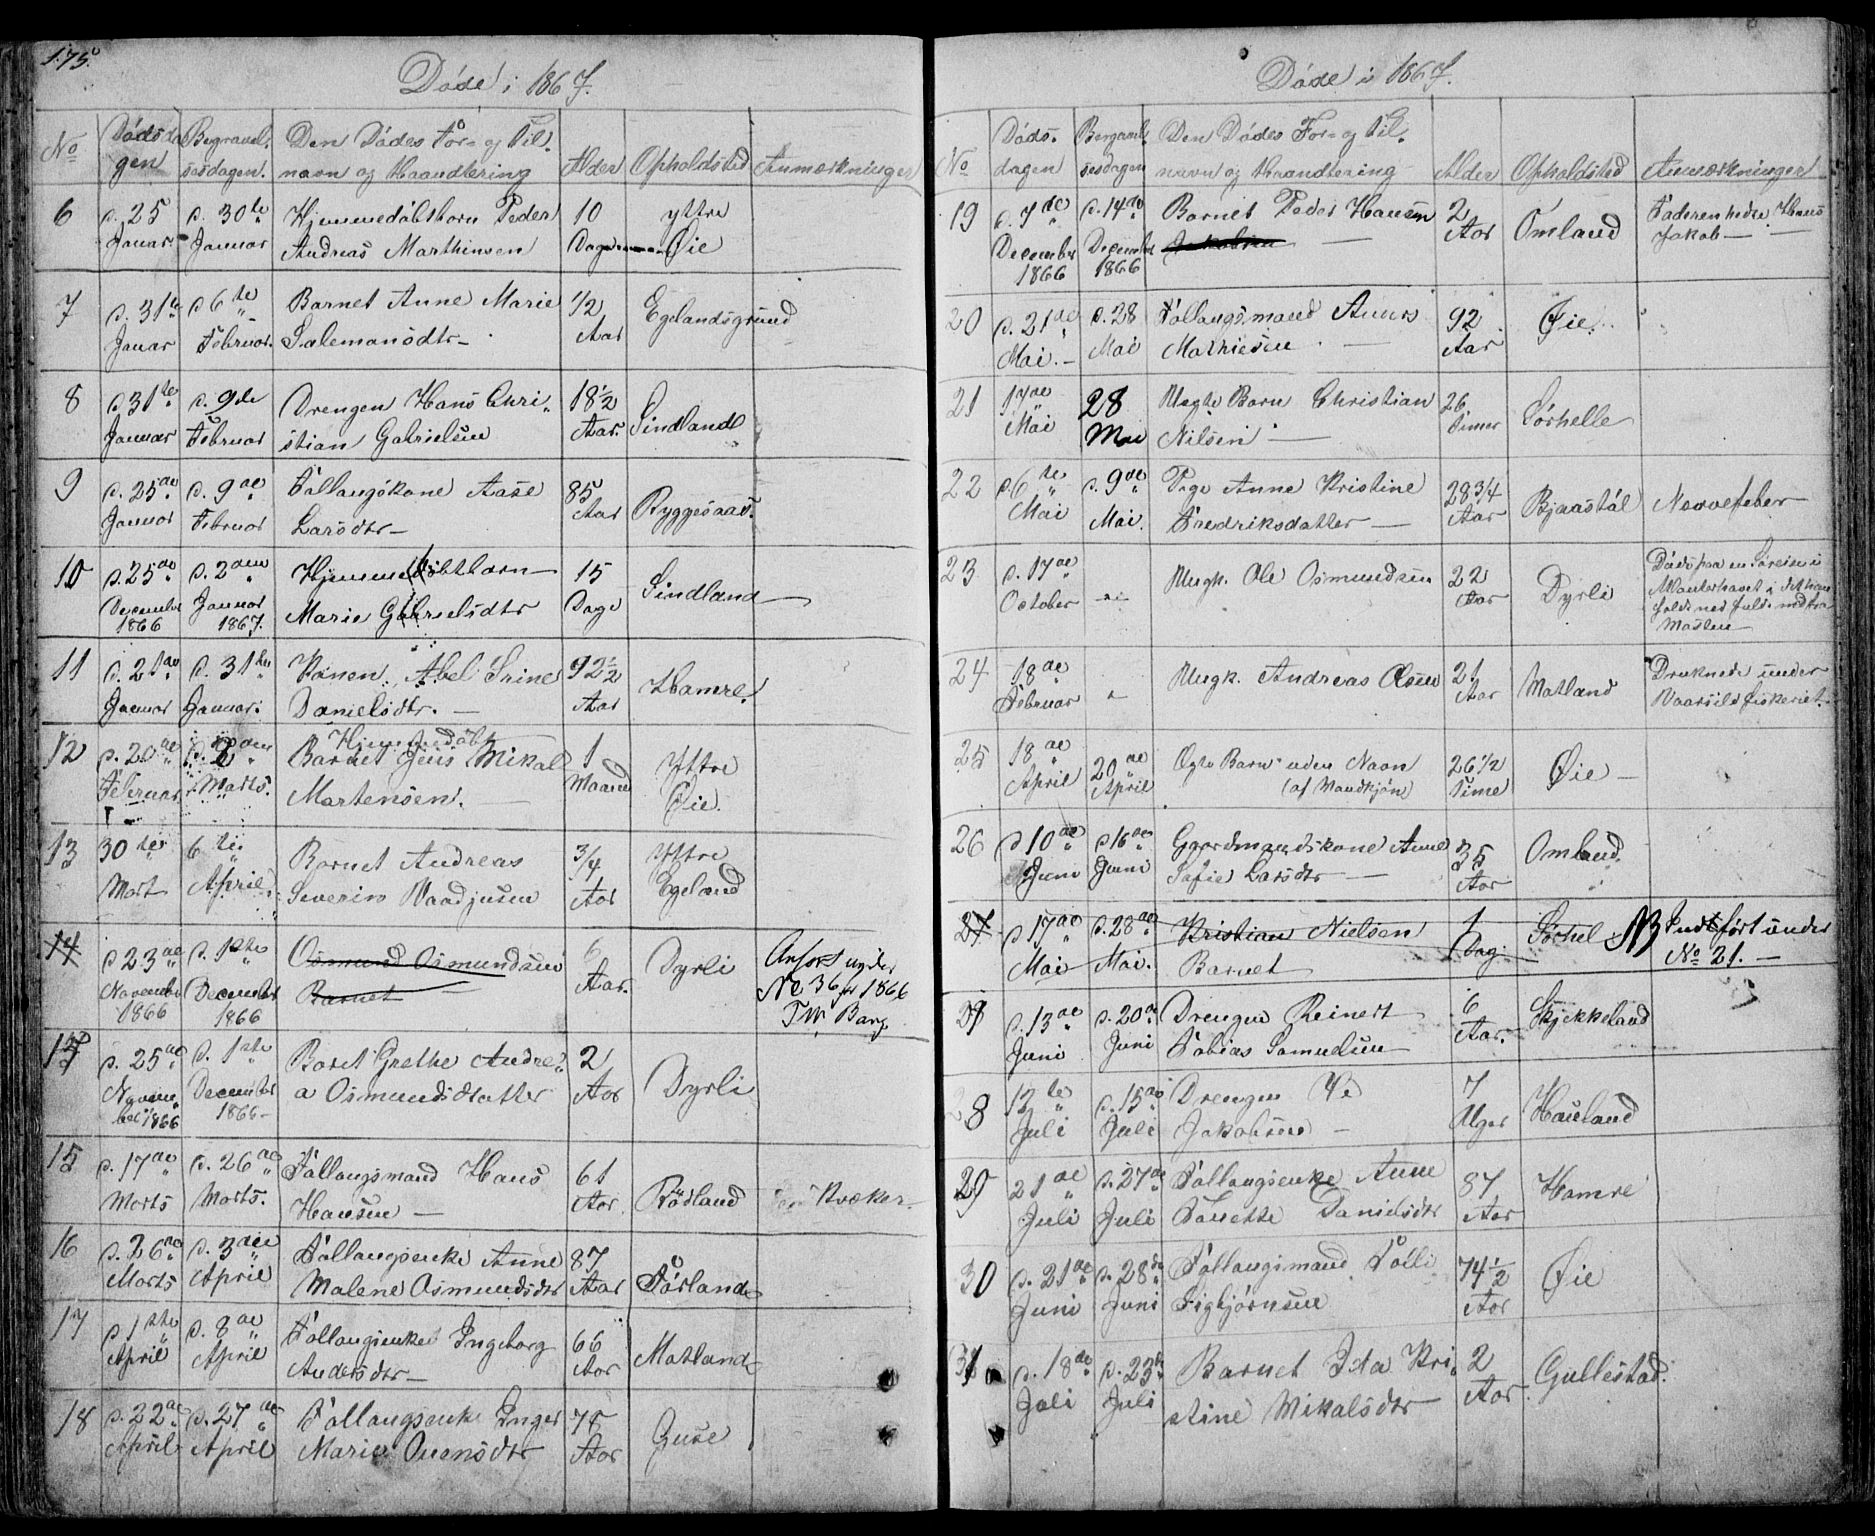 175.
Døde i 1867.
No
Dødsda
gen
Begravel-
sesdagen.
Den Dødes For- og Til-
navn og Haandtering
Alder
Opholdsted
Anmærkninger
6
d. 25
Januar
d. 30te
Januar
Hjemmedøbtbarn Peder
Andreas Marthinsen
10
Dage
yttre
Øie
7
d. 31te
Januar
d. 6te
Februar.
Barnet Anne Marie
Salemonsdtr
1/2
Aar
Egelandsgrund
8
d. 31te
Januar
d. 9de
Februar
Drengen Hans Chri-
stian Gabrielsen
18 1/2
Aar.
Sindland
9
d. 25de
Januar
d. 9de
Februar
Follaugskone Aase
Larsdtr
85
Aar
Ryggesaas.
10
d. 25de
December
1866
d. 2den
Januar
1867.
Hjemmedøbtbarn
Marie Gabrielsdtr
15
Dage
Sindland
11
d. 21de
Januar
d. 31te
Januar.
Konen Abel Trine
Danielsdtr.
92 1/2
Aar
Hamre
12
d. 20de
Februar
d. 2den
Marts.
Hjemmedøbt
Barnet Jens Mikal
Martensen.
1
Maaned
Yttre
Øie.
13
30te
Mart
6te
April
Barnet Andreas
Severin Vaadjusen
3/4
Aar
Yttre
Egeland
14
d. 23de
November
1866
d. 1ste
December
1866
Osmund Osmundsen
Barnet
6
Aar.
Dyrli
Anført under
No 36 for 1866
d. 25de
November 1866
d. 1ste
December
1866
Baret Grethe Andre-
a Osmundsdatter
2
Aar
Dyrli
15
d. 17de
Marts
d. 26de
Marts.
Follaugsmand Hans
Hansen
61
Aar.
Rødland
Kvæker
16
d. 26de
Marts
d. 3die
April
Follaugsenke Anne
Malene Osmundsdtr
87
Aar
Førland
17
d. 1ste
April
d. 8de
April
Follaugsenke Ingeborg
Andersdtr
66
Aar
Matland
18
d. 22de
April
d. 27de
April
Follaugsenke Inger
Marie Ouensdtr
78
Aar
Guse
Døde i 1867.
No
Døds-
dagen
Begravel-
sesdagen
Den Dødes For- og Til-
navn og Haandtering
Alder
Opholdsted
Anmærkninger
19
d. 7de
December
1866
d. 14de
December
1866
Barnet Peder Hansen
Jakobsen
2
Aar
Omland
Faderen hedte Hans
Jakob
20
d. 21de
Mai.
d. 28
Mai
Follaugsmand Anners
Mathiesen
92
Aar
Øie
21
17de
Mai
28
Mai
Uegte Barn Christian
Nilsen
26
Timer
Sørhelle
22
d. 6te
Mai
d. 9de
Mai.
Pige Anne Kristine
Fredriksdatter
28 3/4
Aar
Bjaastøl
Nervefeber
23
d. 17de
October
Ungk. Ole Osmundsen
22
Aar
Dyrli
Døde paa en Søreise i
det han
faldt ned fra
Masten
24
18de
Februar
Ungk. Andreas Olsen
21
Aar
Matland
Druknede under
Vaarsildfiskeriet.
25
18de
April
20de
April
Egte Barn uden Navn
(af Mandkjøn)
26 1/2
Time
Øie
26
d. 10de
Juni
d. 16de
Juni
Gaardmandskone Anne
Sofie Larsdtr
35
Aar
Omland
27
d. 17de
Mai
d. 28de
Mai.
Kristian Nielsen
Barnet
1
Dag
Sørhel
NB Indført under
No 21.
d. 13de
Juni
d. 20de
Juni
Drengen Reinert
Tobias Samuelsen
6
Aar.
Skjekkeland
28
12te
Juli
d. 15de
Juli
Drengen Pe
Jakobsen
7
Uger
Hauland
29
21de
Juli
d. 27de
Juli
Follaugsenke Anne
Tonette Danielsdtr
87
Aar
Hamre
30
d. 21de
Juni
d. 28de
Juni
Follaugsmand Tolli
Sigbjørnsen
74 1/2
Aar
Øie
31
d. 18de
Juli
d. 23de
Juli
Barnet Ida Kri-
stine Mikalsdtr
2
Aar
Gullestad